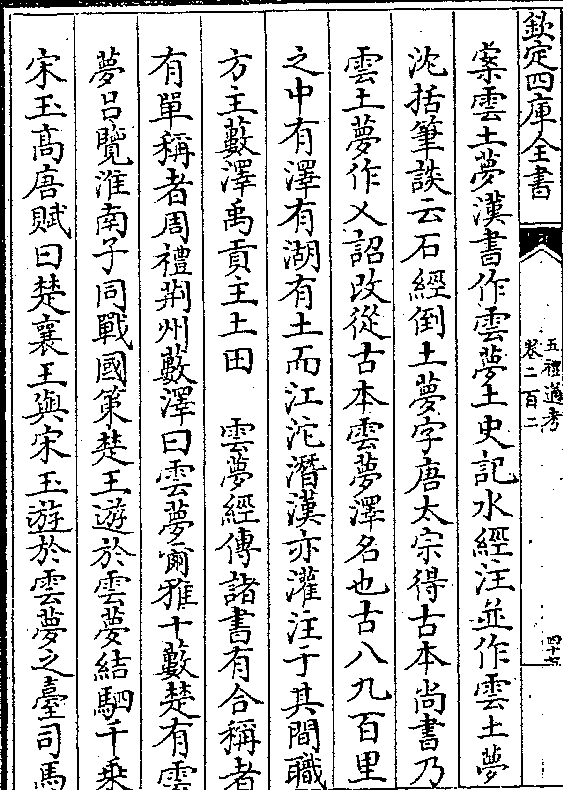 欽定四庫全書
五禮通考
卷二百二
案雲土夢漢書作雲夢土史記水經注並作雲土夢
沈括筆談云石經倒土夢字唐太宗得古本尚書乃
雲土夢作乂詔改從古本雲夢澤名也古八九百里
之中有澤有湖有土而江沱潛漢亦灌注于其間職
方主藪澤禹貢主土田 雲夢經傳諸書有合稱者
有單稱者周禮荆州藪澤曰雲夢爾雅十藪楚有雲
夢吕覽淮南子同戰國策楚王遊於雲夢結駟千乗
宋玉髙唐賦曰楚襄王與宋玉遊於雲夢之臺司馬